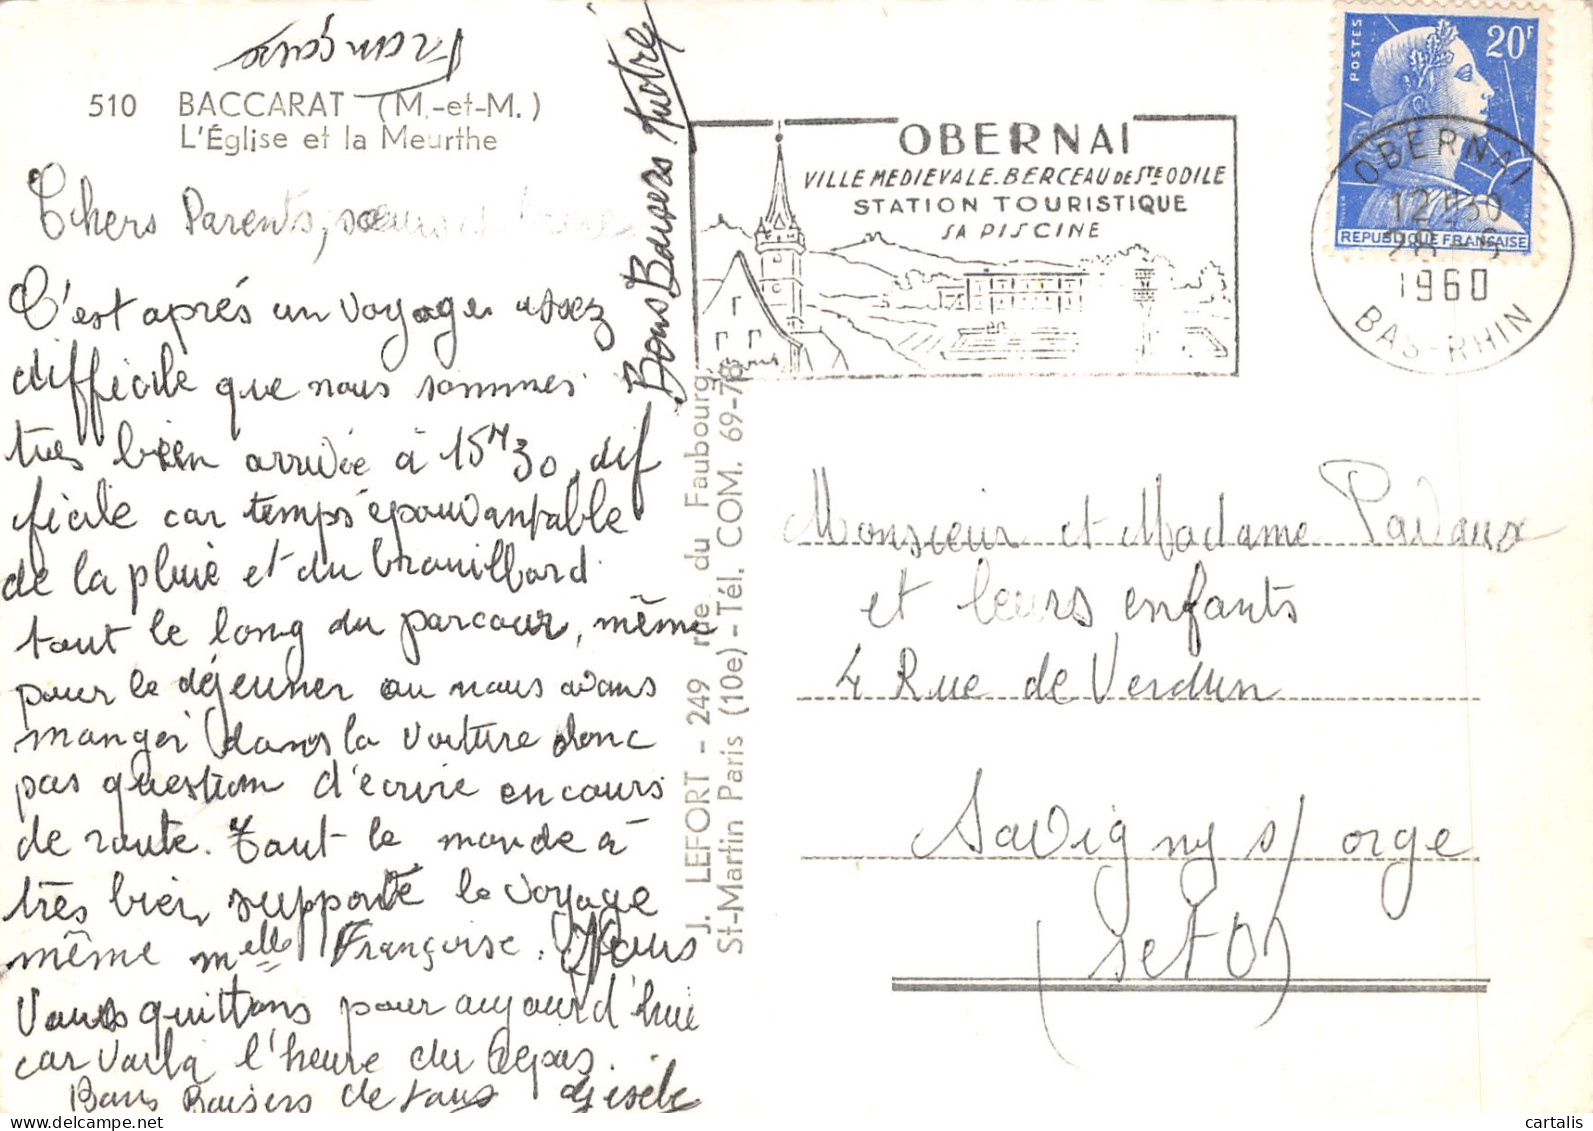 Française
510 BACCARAT (M.-et-M.)
L'Église et la Meurthe
Chers Parents, sœurs et
C'est aprés un voyage assez
difficile que nous sommes
très bien arrivée à 15H30, dif
ficile car temps épouvantable
de la pluie et du brouillard
tout le long du parcour, même
pour le déjeuner ou nous avons
manger dans la voiture donc
pas question d'écrire en cours
de route. Tout le monde à
très bien supporté le voyage
même melle Françoise. Nous
Vous quittons pour aujourd'hui
car voilà l'heure du repas.
Bons Baisers de tous Gisèle
Bons Baisers
J. LEFORT - 249 rue du Faubourg
St-Martin Paris (10e) - Tél. COM. 69-78
OBERNAI
VILLE MEDIEVALE. BERCEAU DE STE ODILE
STATION TOURISTIQUE
SA PISCINE
POSTES
20F
REPUBLIQUE FRANÇAISE
OBERNAI
12H30
28-6
1960
BAS-RHIN
Monsieur et Madame Pavaux
et leurs enfants
4 Rue de Verdun
Savigny s/ orge
(S et O)
cartalis
www.delcampe.net